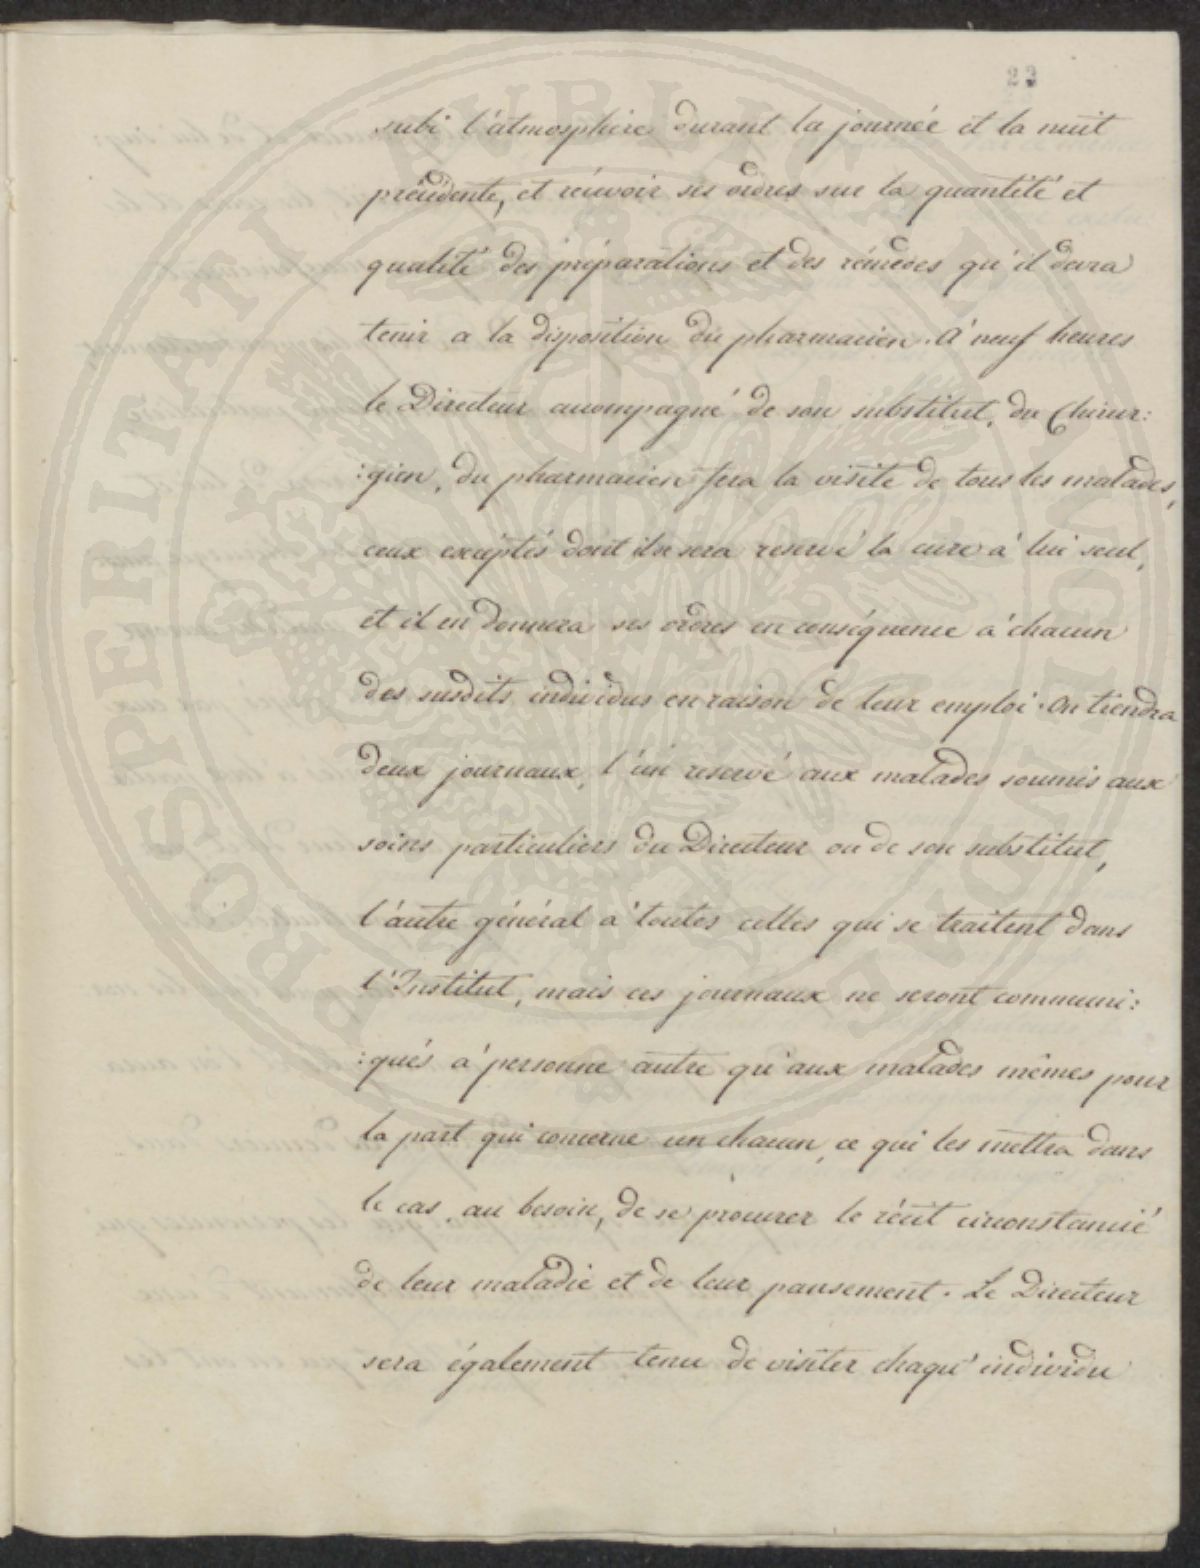 23
subi l'atmosphère durant la journée et la nuit
précédente, et récevoir ses ordres sur la quantité et
qualité des préparations et des rémèdes qu'il devra
tenir a la disposition du pharmacien. à neuf heures
le Directeur accompagné de son substitut, du Chirur:
:gien, du pharmacien fera la visite de tous les malades,
ceux exceptés dont il se sera reservé la cure à lui seul,
et il en donnera ses ordres en conséquence à chacun
des susdits individus en raison de leur emploi. on tiendra
deux journaux, l'un reservé aux malades soumis aux
soins particuliers du Directeur ou de son substitut,
l'autre général à toutes celles qui se traitent dans
l'Institut, mais ces journaux ne seront communi:
:qués à personne autre qu'aux malades mêmes pour
la part qui concerne un chacun, ce qui les mettra dans
le cas au besoin, de se procurer le récit circonstancié
de leur maladie et de leur pansement. Le Directeur
sera également tenu de visiter chaqu' individu
PROSPERITATI PUBLICAE